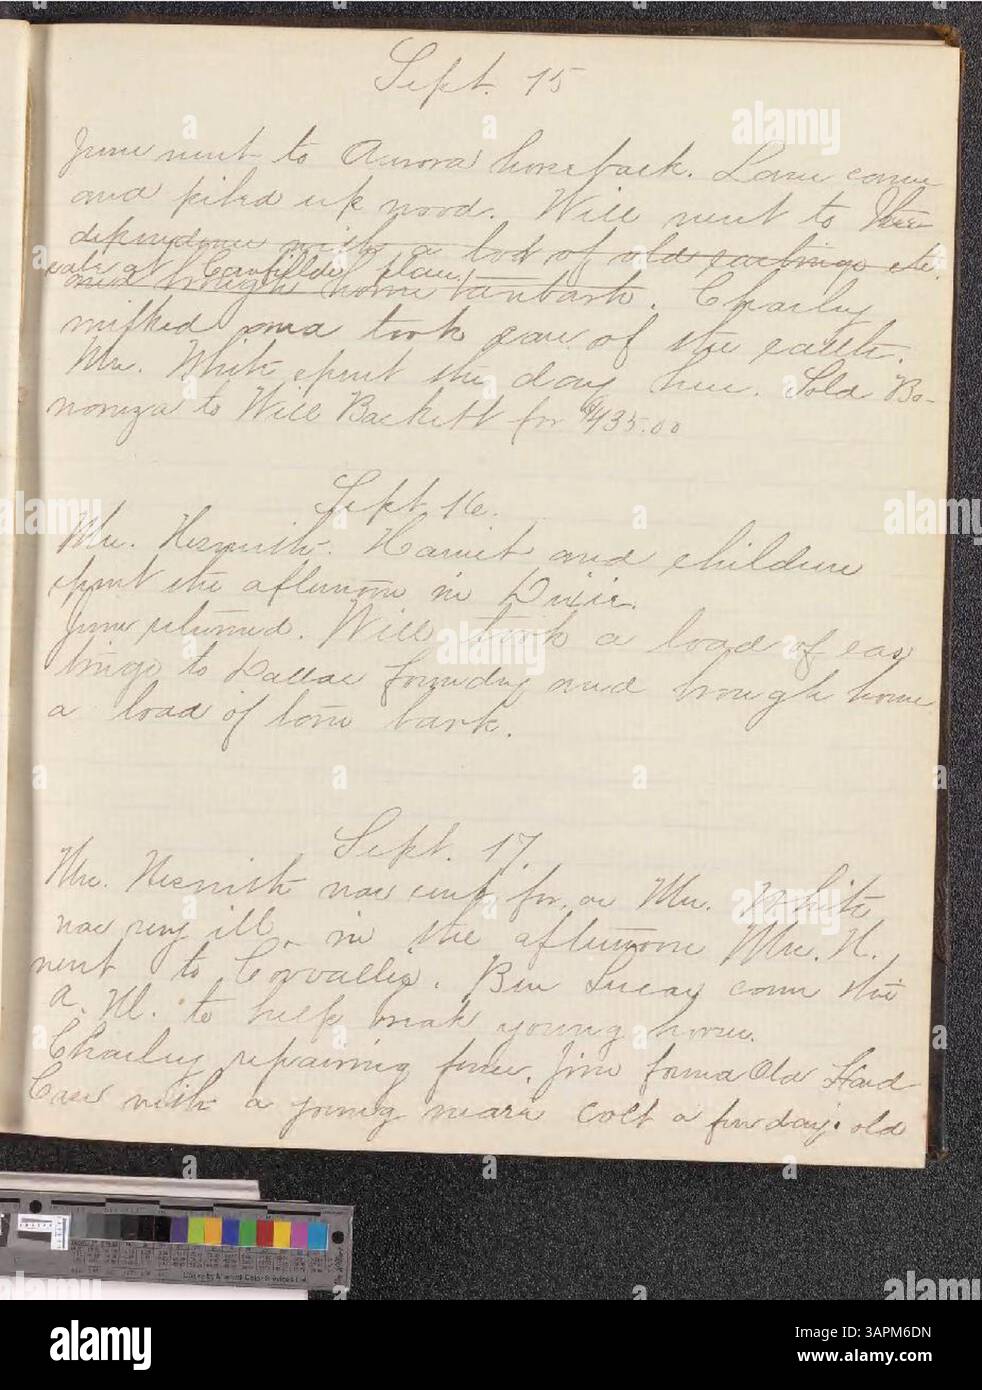 Sept. 15
June went to Aurora horseback. Lane came
and piled up wood. Will went to In-
dependence with a load of old castings etc.
at Canfields place
and brough home tanbark. Charley
milked and took care of the cattle.
Mr. White spent the day here. Sold Bo-
noniza to Will Backett for $435.00
Sept. 16.
Mr. Nesmith. Harriet and children
spent the afternoon in Dixie.
June returned. Will took a load of cas
tings to Dallas foundry and brough home
a load of tan bark.
Sept. 17.
Mr. Nesmith was sent for, as Mr. White
was very ill, in the afternoon Mr. N.
went to Corvallis. Ben Lucas came this
A. M. to help break young horse.
Charley repairing fence. Jim found Old Hard
Case with a young mare colt a few days old
alamy
a
Image ID: 3APM6DN
www.alamy.com